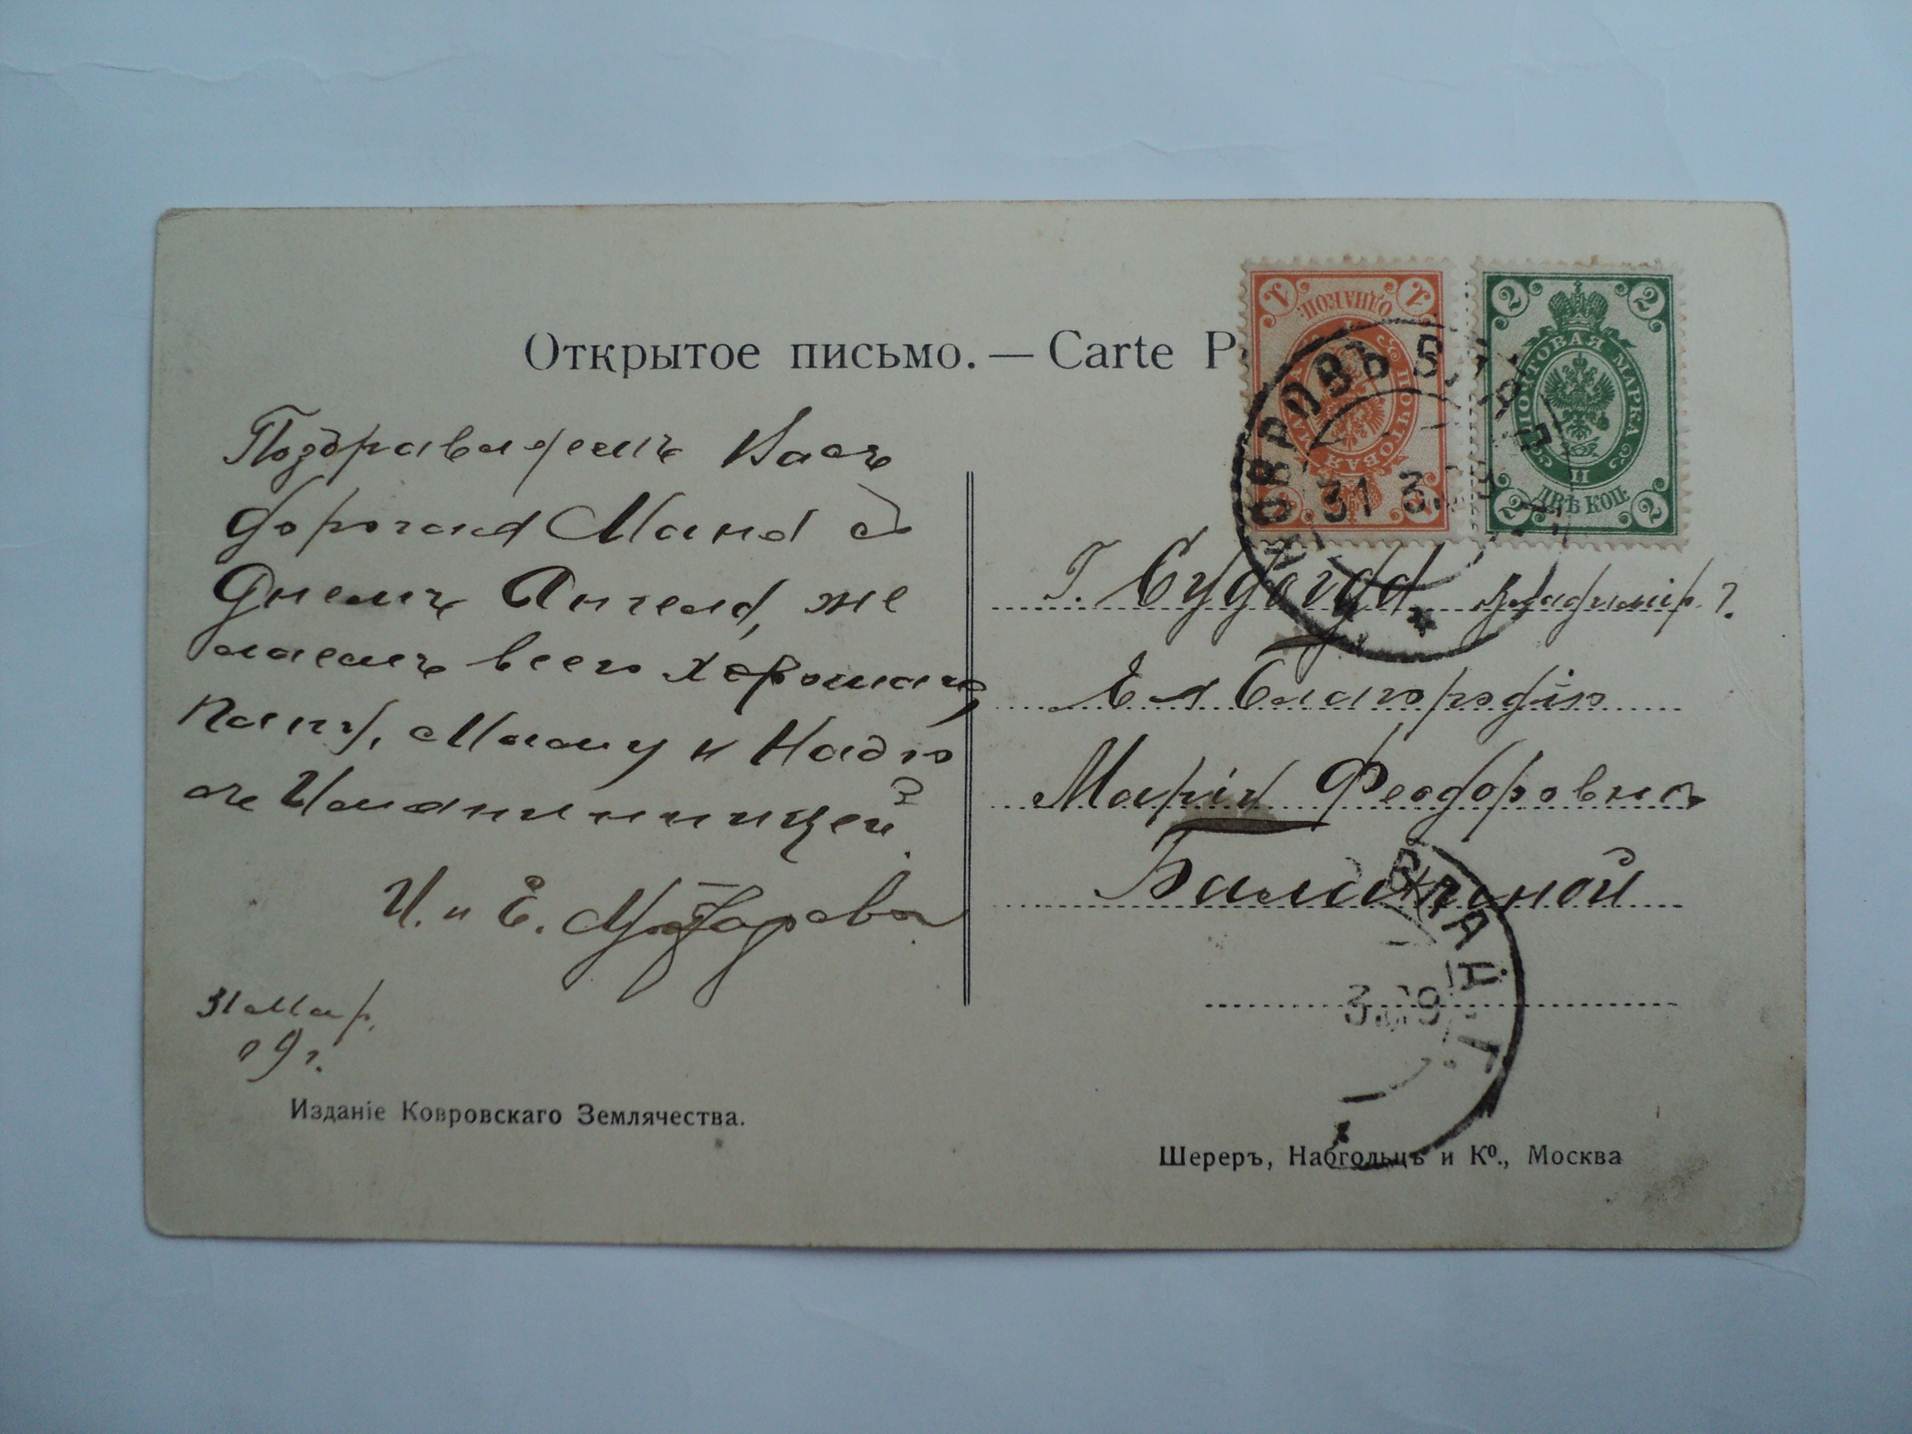 Открытое письмо. — Carte P
1 1
ОДНА КОП.
ПОЧТОВАЯ МАРКА
1 1
2 2
ПОЧТОВАЯ МАРКА
ДВѢ КОП.
2 2
КОВРОВЪ ВЛАД
31 3.09
Поздравляемъ Васъ
дорогая Маня съ
Днемъ Ангела, же
лаемъ всего хорошаго,
Папу, Маму и Надю
съ Имянинницей.
И. и Е.
31 Мар.
09 г.
Г. Судогда Владимір. г.
Ея Благородію
Маріи Феодоровнѣ
ВЛАД. Г
3.09
Изданіе Ковровскаго Землячества.
Шереръ, Набгольцъ и Ко., Москва